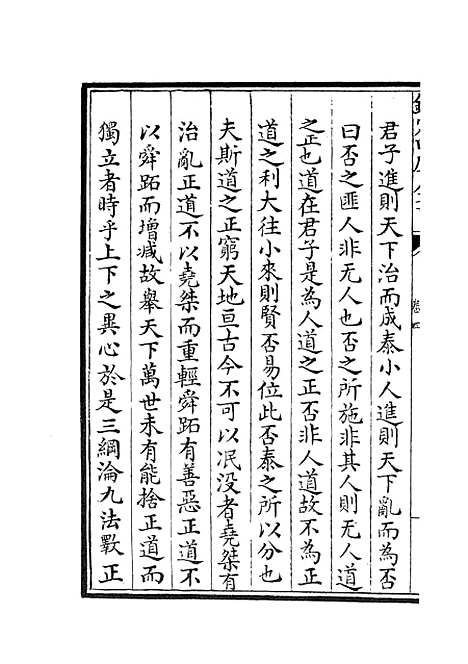 君子進則天下治而成泰小人進則天下亂而為否
曰否之匪人非无人也否之所施非其人則无人道
之正也道在君子是為人道之正否非人道故不為正
道之利大往小來則賢否易位此否泰之所以分也
夫斯道之正窮天地亘古今不可以冺没者堯桀有
治亂正道不以堯桀而重輕舜跖有善惡正道不
以舜跖而增减故舉天下萬世未有能捨正道而
獨立者時乎上下之異心於是三綱淪九法斁正